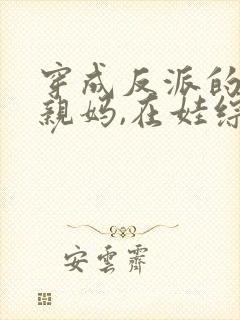 穿成反派的
親妈,在娃综
安雲霽